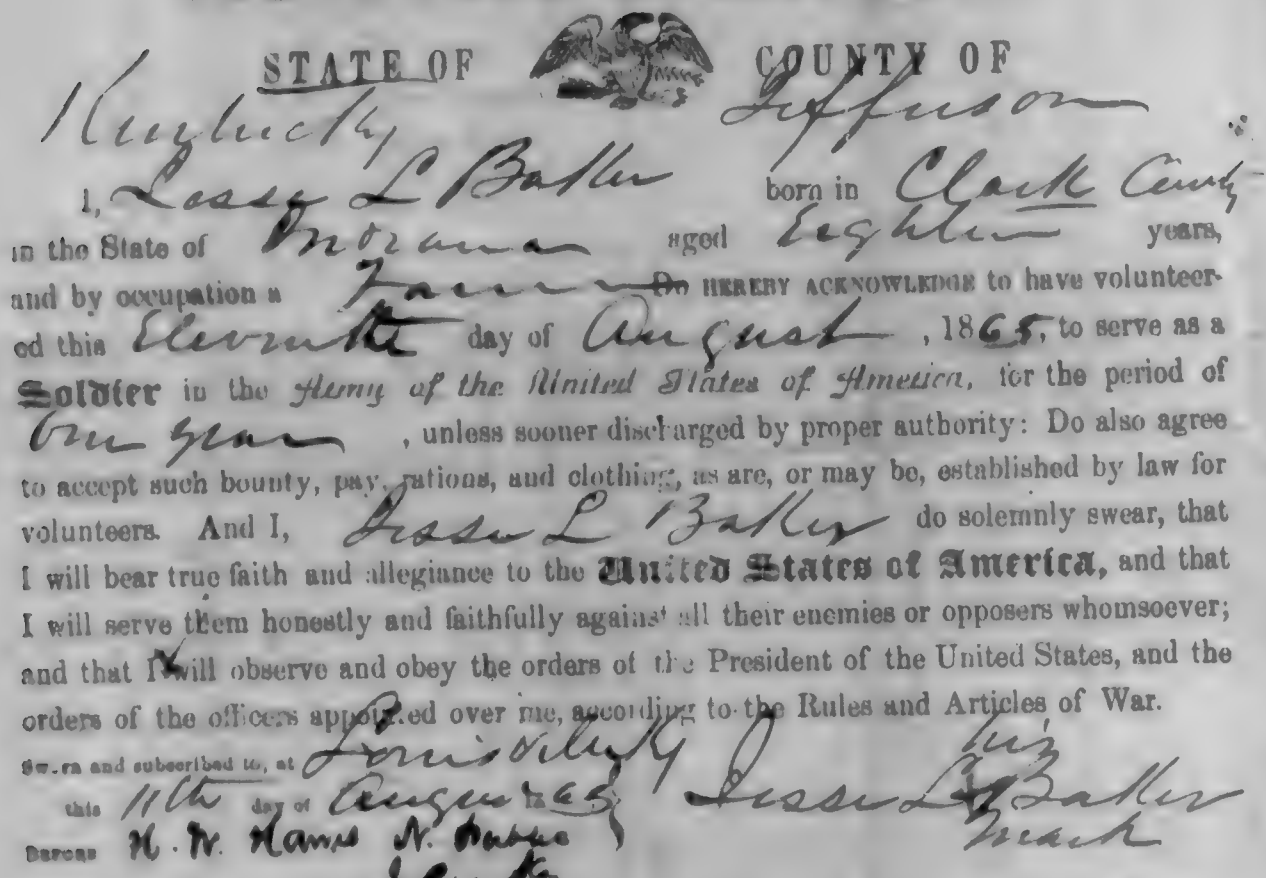 STATE OF COUNTY OF
Kentucky Jefferson
I, Jesse L Baker born in Clark County
in the State of Indiana aged Eighteen years,
and by occupation a Farmer Do HEREBY ACKNOWLEDGE to have volunteer-
ed this Eleventh day of August, 1865, to serve as a
Soldier in the Army of the United States of America, for the period of
One year, unless sooner discharged by proper authority: Do also agree
to accept such bounty, pay, rations, and clothing, as are, or may be, established by law for
volunteers. And I, Jesse L Baker do solemnly swear, that
I will bear true faith and allegiance to the United States of America, and that
I will serve them honestly and faithfully against all their enemies or opposers whomsoever;
and that I will observe and obey the orders of the President of the United States, and the
orders of the officers appointed over me, according to the Rules and Articles of War.
Sworn and subscribed to, at Louisville Ky his
this 11th day of August 1865 Jesse L Baker
mark
BEFORE H. W.